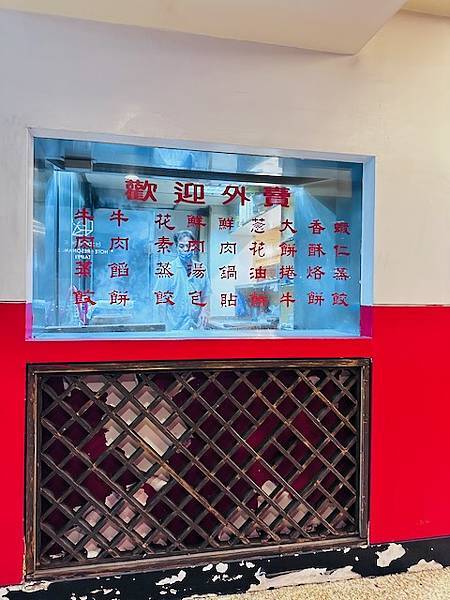 歡迎外賣
蝦仁蒸餃
香酥烙餅
大餅捲牛
葱花油餅
鮮肉鍋貼
鮮肉湯包
花素蒸餃
牛肉餡餅
牛肉蒸餃
TAIPEI